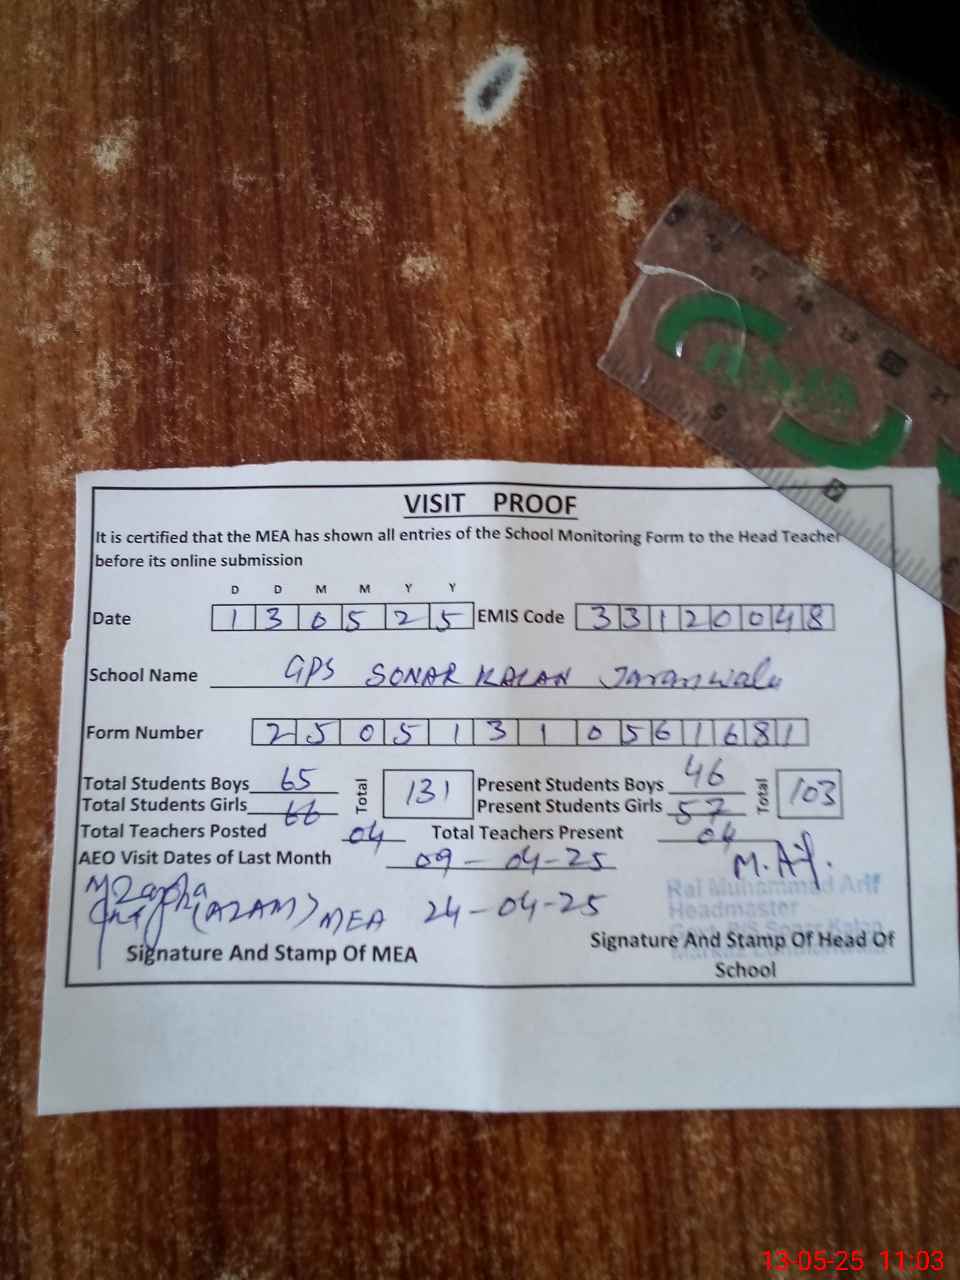 VISIT PROOF
It is certified that the MEA has shown all entries of the School Monitoring Form to the Head Teacher
before its online submission
D D M M Y Y
Date 1 3 0 5 2 5 EMIS Code 3 3 1 2 0 0 4 8
School Name GPS SONAR KALAN Jaranwala
Form Number 2 5 0 5 1 3 1 0 5 6 1 6 8 1
Total Students Boys 65 Total 131 Present Students Boys 46 Total 103
Total Students Girls 66 Present Students Girls 57
Total Teachers Posted 04 Total Teachers Present 04
AEO Visit Dates of Last Month 09-04-25
M. Arif.
(AZAM) MEA 24-04-25
Rai Muhammad Arif
Headmaster
Signature And Stamp Of MEA
Signature And Stamp Of Head Of
School
13-05-25 11:03